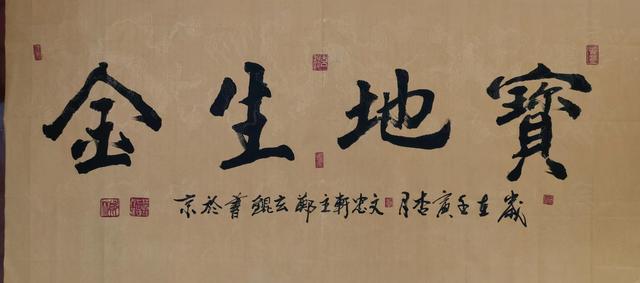 寶地生金
歲在壬寅杏月文忠軒主鄭玄鯤書於京